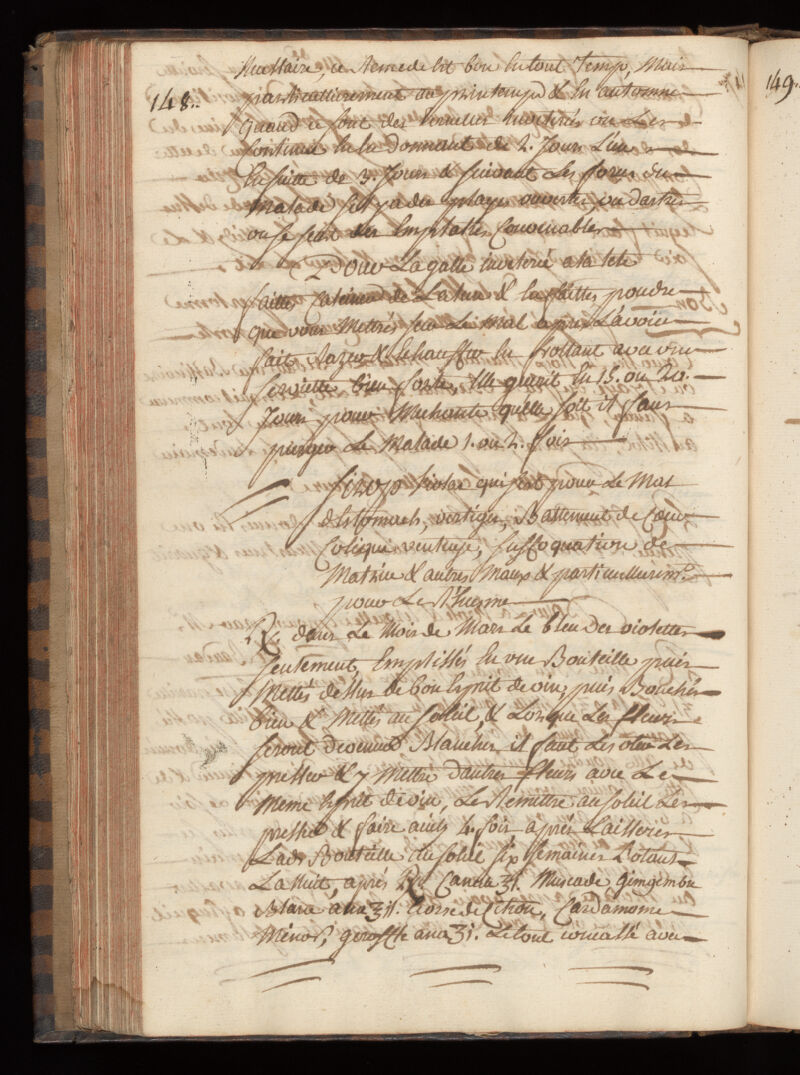 nessaire, ce Remede Est bon En tout Temp, Mais
148..
particullierement au printemps & En automne
quand ce sont des verolles inveterés on Les
Continue En La donnant de 2. Jours L'un
Ensuitte de 3. Jours & suivant Les forces du
Malade s'il y a des playes ouvertes ou dartres
on se sert des Emplatres Convenables
Pour La galle inveterée a la tete
faittes Calciner de La & la faittes poudre
que vous Mettrés sur Le Mal apres L'avoir
fait Razer & Echauffer En frottant avec une
serviette bien forte, Elle guerit En 15. ou 20.
Jours pour Mechante qu'elle soit il faut
purger Le Malade 1. ou 2. fois
Sirop violat qui sert pour Le Mal
d'Estomach, vertiges, Battement de Coeur
Colique venteuse, suffoquation de
Matrice & autres Maux & particullierem.t
pour Le Rheume
Rx. dans Le Mois de Mars Le bleu des violettes
seulement, Emplissés En une Bouteille puis
Mettés dessus de bon Esprit de vin, puis Bouchés
bien & Mettés au soleil, & Lorsque Les fleurs
seront devenues Blanches il faut Les oter Les
presser & y Mettre d'autres fleurs avec Le
Meme Esprit de vin, Le Remettre au soleil Les
presser & faire ainsy 4. fois apres Laisserés
Lad.e Bouteille au soleil six semaines L'otant
La Nuit, aprés Rx. Canela ʒi. Muscade gimgembre
Blanc ana ʒii. Ecorse de Citron, Cardamome
Minor, geroffle ana ʒi. Le tout concassé avec
149..